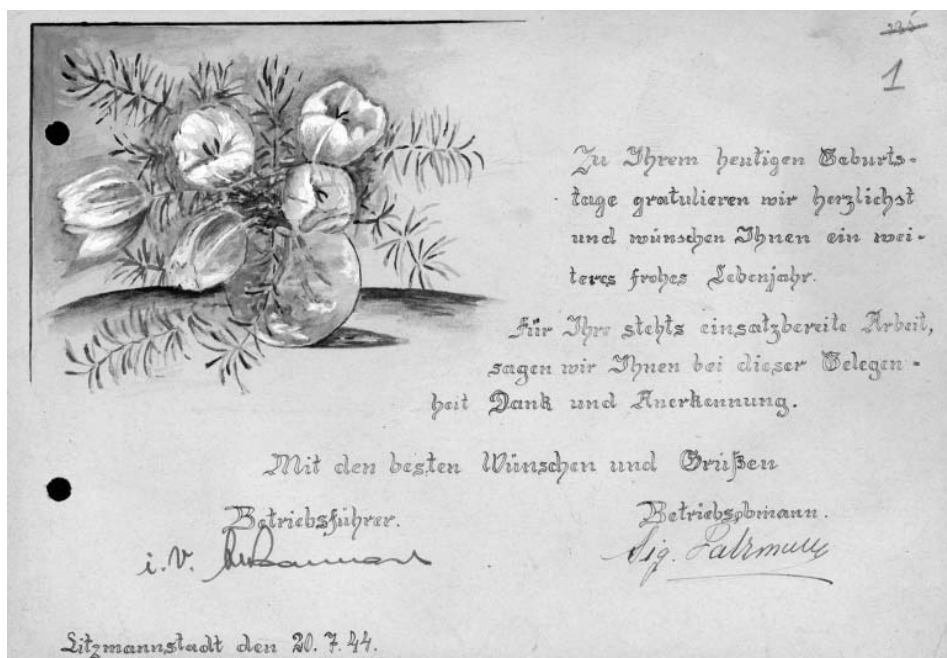 1
Zu Ihrem heutigen Geburts-
tage gratulieren wir herzlichst
und wünschen Ihnen ein wei-
teres frohes Lebenjahr.
Für Ihre stehts einsatzbereite Arbeit,
sagen wir Ihnen bei dieser Gelegen-
heit Dank und Anerkennung.
Mit den besten Wünschen und Grüßen
Betriebsführer.
Betriebsobmann.
i.V.
Sig.
Litzmannstadt den 20.7.44.